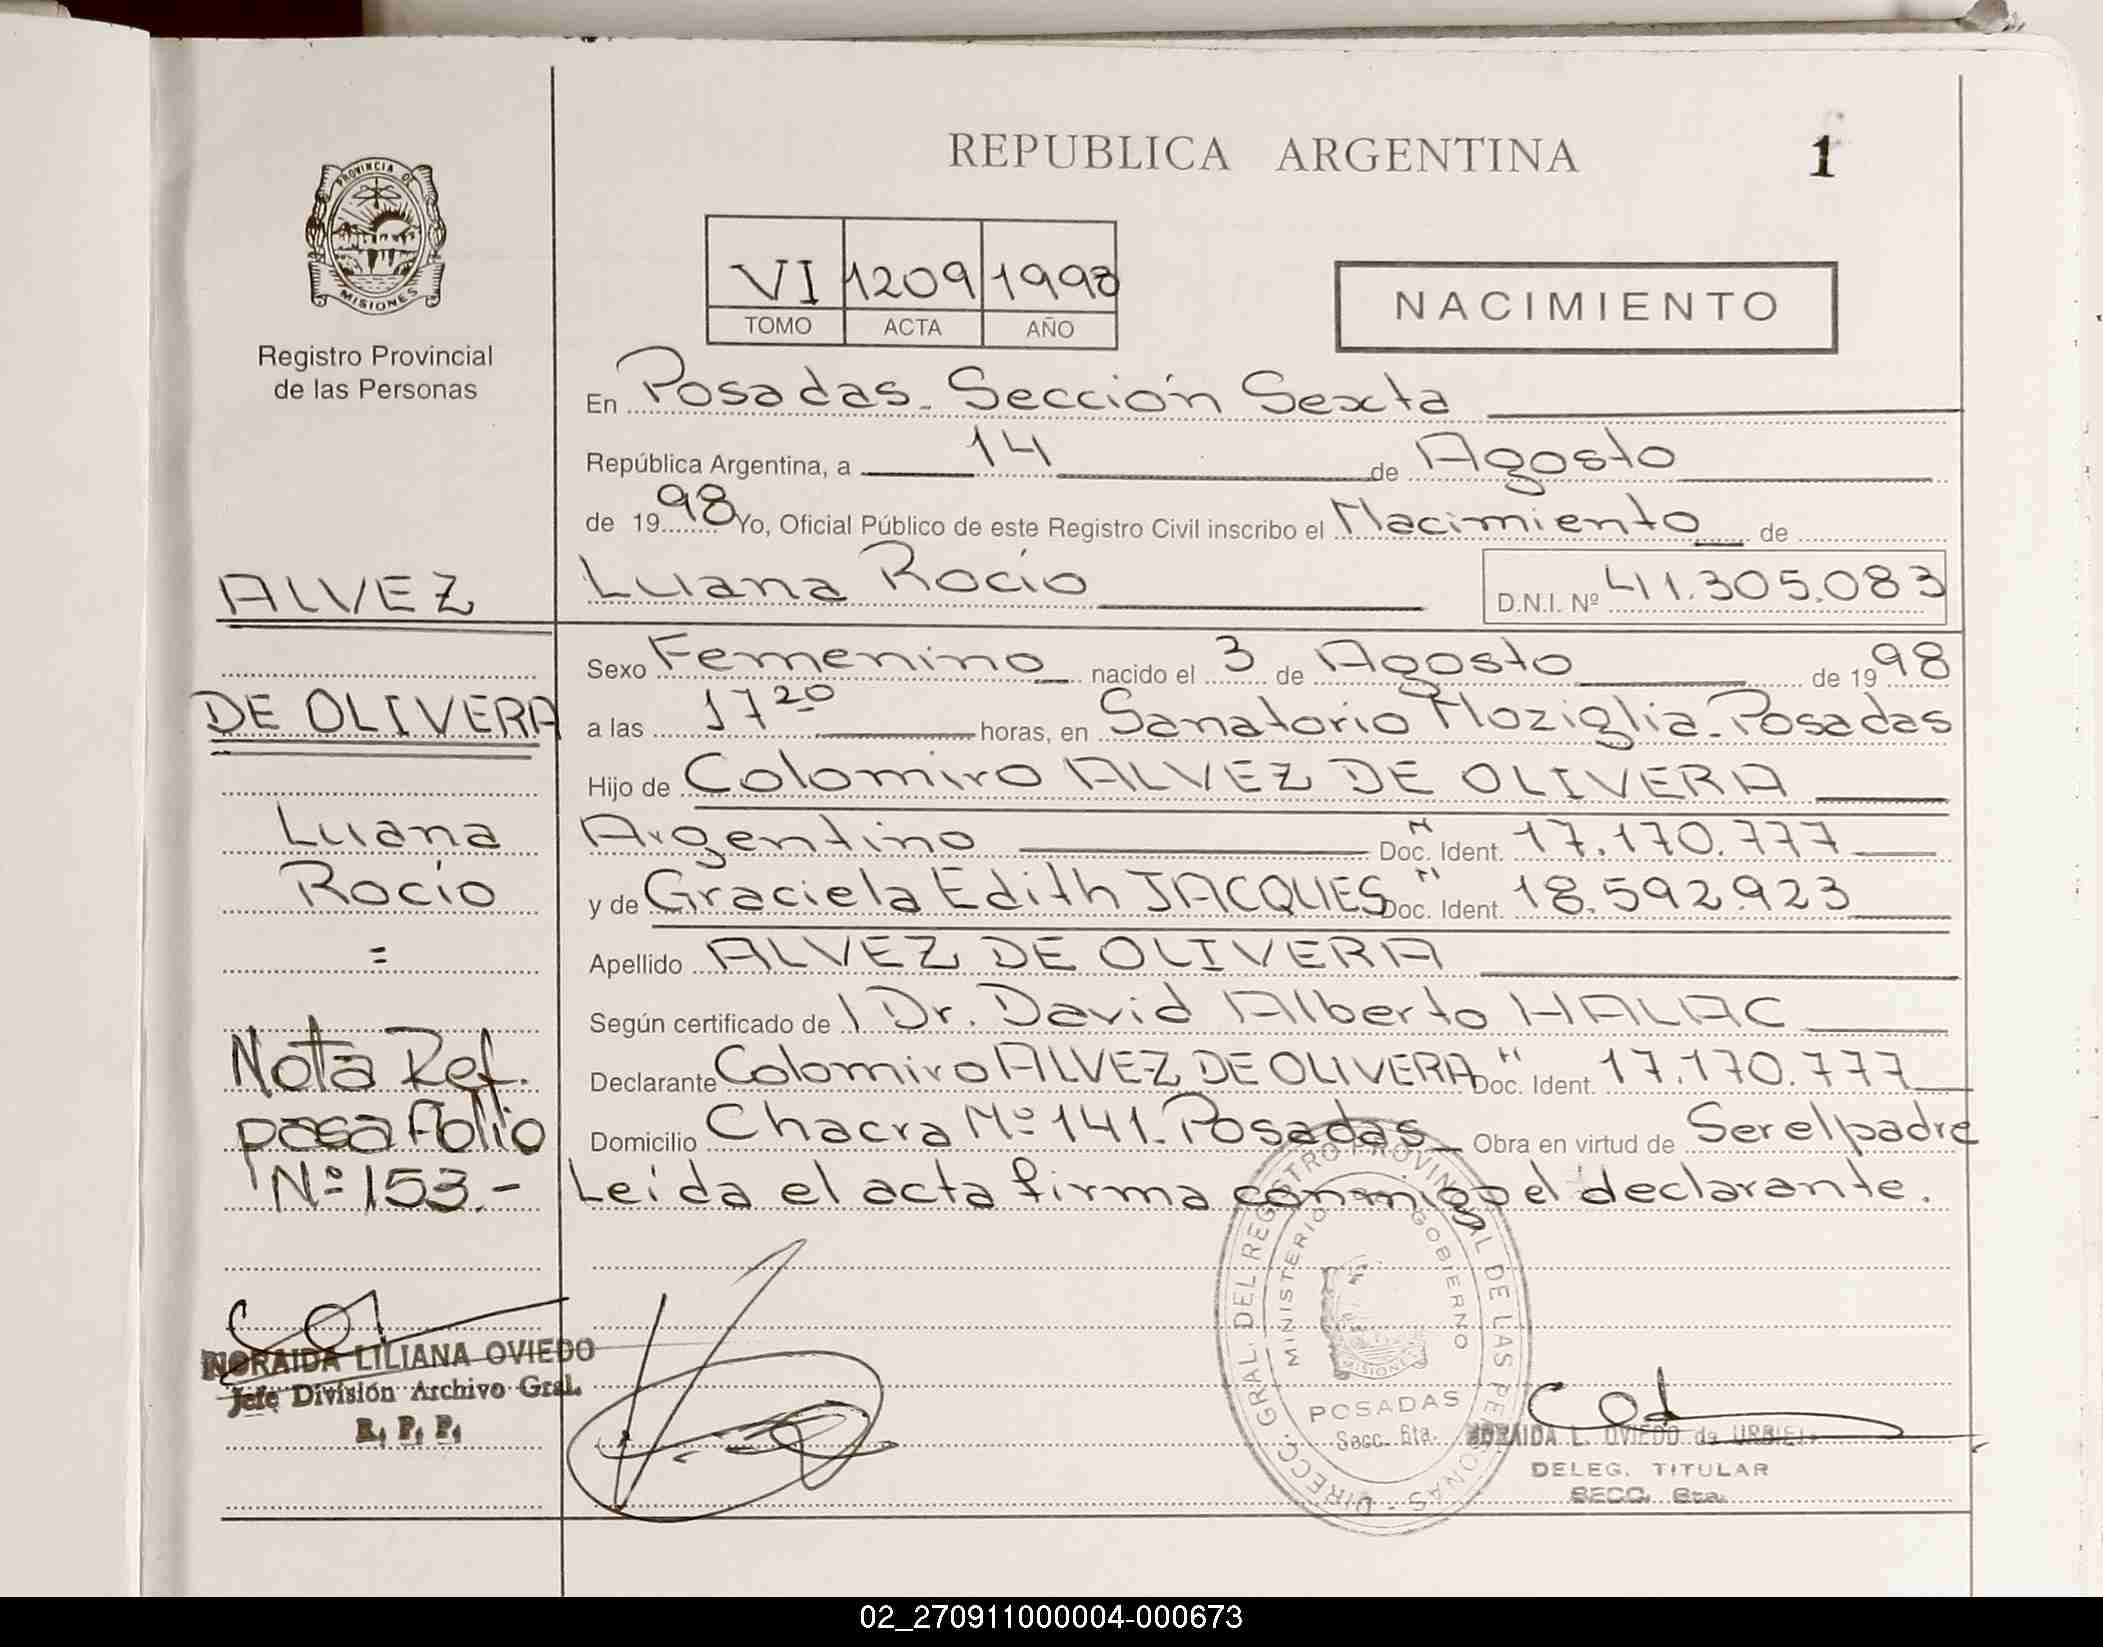 REPUBLICA ARGENTINA
1
PROVINCIA DE
MISIONES
Registro Provincial
de las Personas
VI 1209 1998
TOMO ACTA AÑO
NACIMIENTO
En Posadas. Sección Sexta
República Argentina, a 14 de Agosto
de 1998 Yo, Oficial Público de este Registro Civil inscribo el Nacimiento de
Luana Rocío D.N.I. Nº 41.305.083
Sexo Femenino nacido el 3 de Agosto de 1998
a las 17 20 horas, en Sanatorio Moziglia. Posadas
Hijo de Colomiro ALVEZ DE OLIVERA
Argentino M Doc. Ident. 17.170.777
y de Graciela Edith JACQUES " Doc. Ident. 18.592.923
Apellido ALVEZ DE OLIVERA
Según certificado de Dr. David Alberto HALAC
Declarante Colomiro ALVEZ DE OLIVERA Doc. Ident. 17.170.777
Domicilio Chacra Nº 141. Posadas Obra en virtud de Ser el padre
Leída el acta firma conmigo el declarante.
ALVEZ
DE OLIVERA
Luana
Rocío
=
Nota Ref.
pasa Folio
Nº 153.-
NORAIDA LILIANA OVIEDO
Jefe División Archivo Gral.
R. P. P.
DIRECC. GRAL. DEL REGISTRO PROVINCIAL DE LAS PERSONAS -
MINISTERIO GOBIERNO
MISIONES
POSADAS
Secc. 6ta.
NORAIDA L. OVIEDO de
DELEG. TITULAR
SECC. 6ta.
02_270911000004-000673